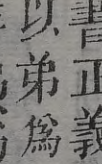 書正義
以弟爲